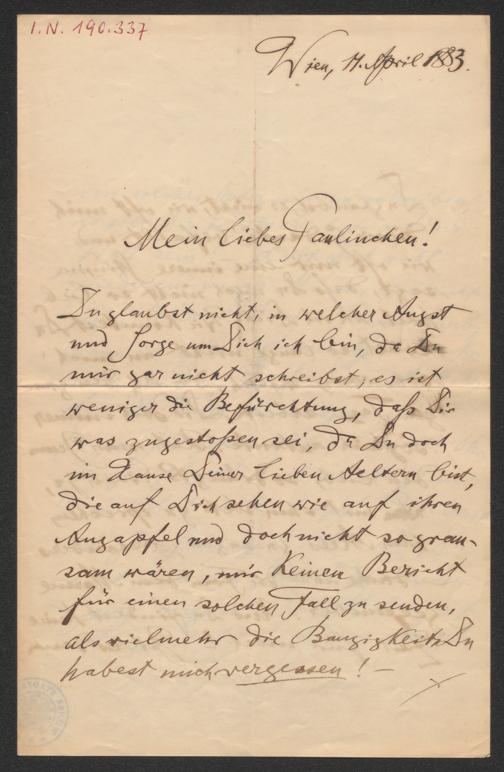 I. N. 190.337
Wien, 17. April 1883.
Mein liebes Paulinchen!
Du glaubst nicht, in welcher Angst
und Sorge um Dich ich bin, da Du
mir gar nicht schreibst; es ist
weniger die Befürchtung, daß Dir
was zugestoßen sei, da Du doch
im Hause Deiner lieben Aeltern bist,
die auf Dich sehen wie auf ihren
Augapfel und doch nicht so grau-
sam wären, mir keinen Bericht
für einen solchen Fall zu senden,
als vielmehr die Bangigkeit, Du
habest mich vergessen! –